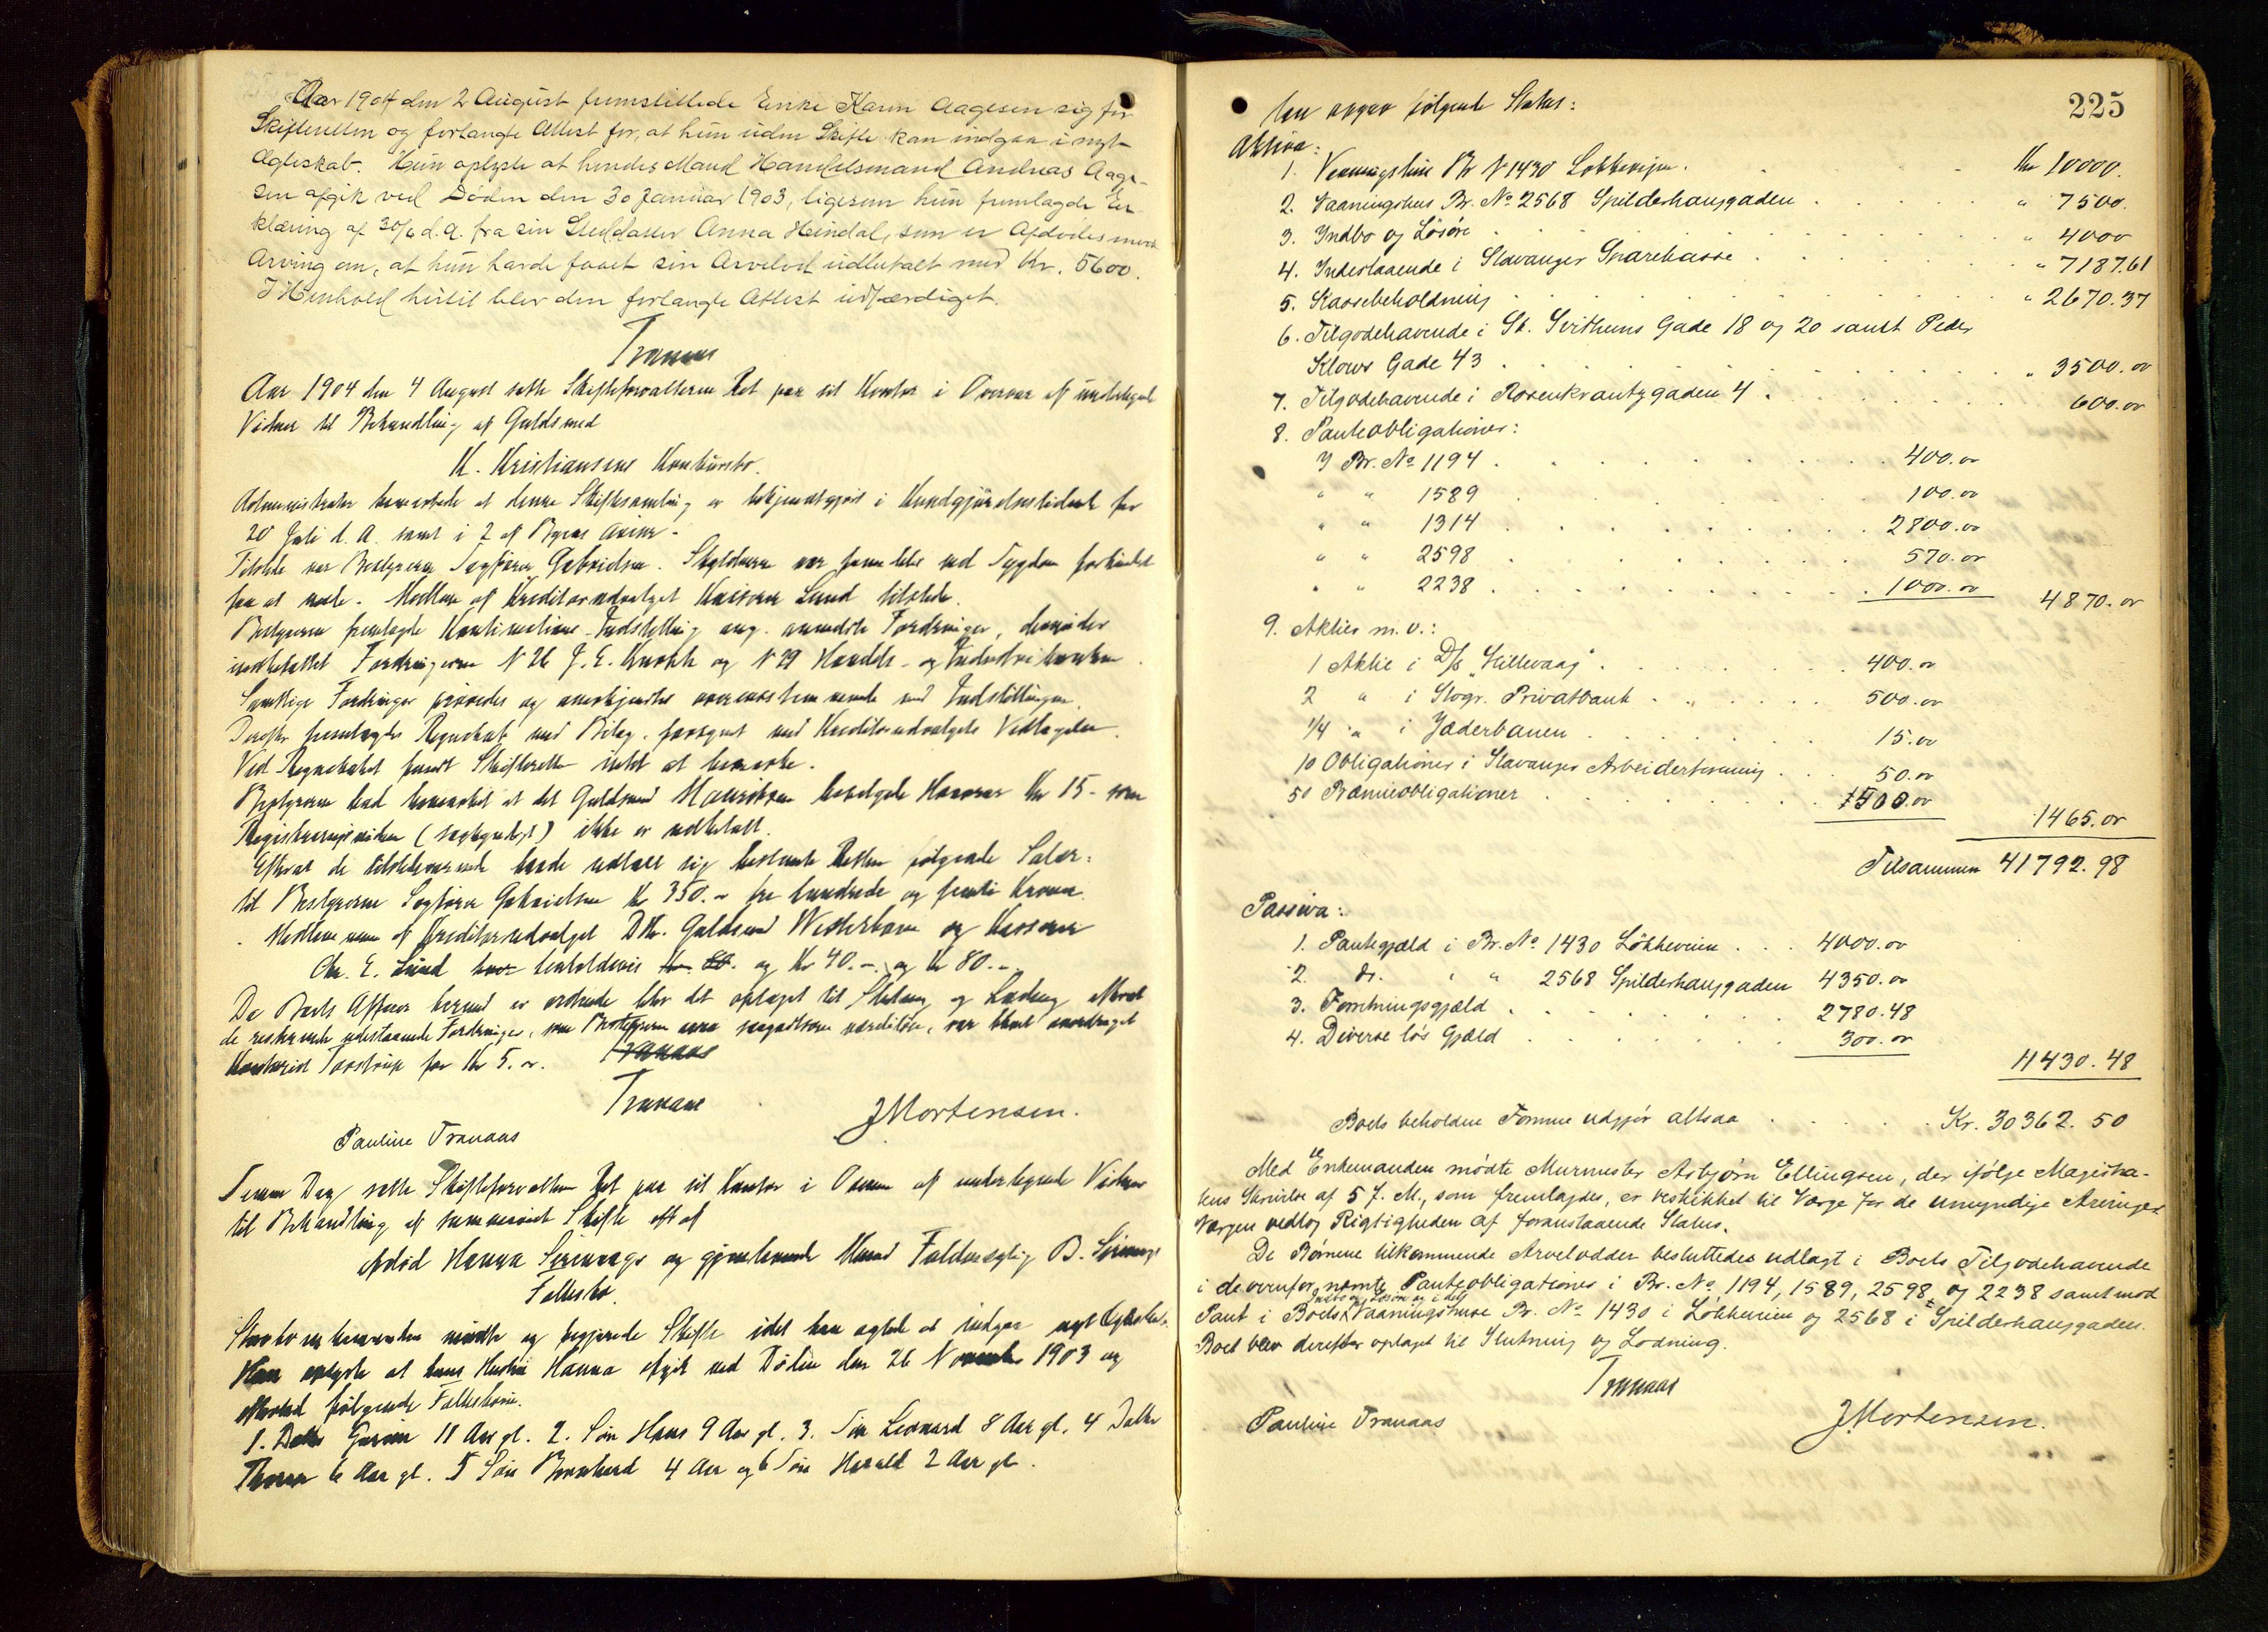 Aar 1904 den 2 August fremstillede Enke Karen Aagesen sig for
Skifteretten og forlangte Attest for, at hun uden Skifte kan indgaa i nyt
Ægteskab. Hun oplyste at hendes Mand Handelsmand Andreas Aage-
sen afgik ved Døden den 30 Januar 1903, ligesom hun fremlagde Er-
klæring af 30/6 d.A. fra sin Steddatter Anna Heindal, som er Afdødes eneste
Arving om, at hun havde faaet sin Arvelod udbetalt med Kr. 5600.
I Henhold hertil blev den forlangte Attest udfærdiget.
Tranaas
Aar 1904 den 4 August satte Skifteforvalteren Ret paa sit Kontor i Overvær af undertegnede
Vidner til Behandling af Guldsmed
K. Kristiansens Konkursbo.
Administrator bemærkede at denne Skiftesamling er bekjendtgjort i Kundgjørelsestidende for
20 Juli d. A. samt i 2 af Byens Aviser.
Tilstede var Bestyreren Sagfører Gabrielsen. Skyldneren var fremdeles ved Sygdom forhindret
fra at møde. Medlem af Kreditorudvalget Kasserer Lund tilstede.
Bestyreren fremlagde Kontinuations-Indstilling ang. anmeldte Fordringer, derunder
indbefattet Fordringerne N 26 J. E. og N 29 Handels- og Industribanken.
Samtlige Fordringer prøvedes og anerkjendtes overensstemmende med Indstillingen.
Derefter fremlagdes Regnskab med Bilag, forsynet med Kreditorudvalgets Vedtagelse.
Ved Regnskabet fandt Skifteretten intet at bemærke.
Bestyreren bemærket at det Guldsmed Mauritzen Honorar Kr 15- som
Registreringsvidne ( ) ikke er udbetalt.
Efterat de tilstedeværende havde udtalt sig bestemte Retten følgende Salær:
til Bestyreren Sagfører Gabrielsen Kr 350.- tre hundrede og femti Kroner.
Medlemmene af Kreditorudvalget DHr. Guldsmed Westerborn og Kasserer
Chr. E. Lund henholdsvis Kr 40.- og Kr 80.-
Da Boets Affærer hermed er ordnede blev det optaget til Slutning og Lodning efterat
de resterende udestaaende Fordringer, som Bestyreren ansaa saagodtsom værdiløse, var blevet overdraget
Kontorist Taostrup for Kr 5. oo.
Tranaas
Tranaas
JMortensen.
Pauline Tranaas
Samme Dag satte Skifteforvalteren Ret paa sit Kontor i Overvær af undertegnede Vidner
til Behandling af summarisk Skifte efter
Afdød Hanna Serinags og gjenlevende Mand B. Serinags
Fællesbo.
Enkemanden mødte og begjærede Skifte idet han agted at indgaa nyt Ægteskab.
Han oplyste at hans Hustru Hanna afgik ved Døden den 26 November 1903 og
efterlod følgende Fællesbørn.
1. Datter 11 Aar gl. 2. Søn Hans 9 Aar gl. 3. Søn Leonard 8 Aar gl. 4 Datter
6 Aar gl. 5 Søn Bernhard 4 Aar og 6 Søn Harald 2 Aar gl.
225
han opgav følgende Status:
Aktiva:
1. Vaaningshus Br N 1430 Løkkeveien. Kr 10000.
2. Vaaningshus Br. No 2568 Spilderhausgaden " 7500.
3. Indbo og Løsøre " 4000
4. Indestaaende i Stavanger Sparekasse " 7187.61
5. Kassebeholdning " 2670.37
6. Tilgodehavende i St. Svithuns Gade 18 og 20 samt Peder
Klows Gade 43 " 3500. oo
7. Tilgodehavende i Rosenkrantzgaden 4 600. oo
8. Panteobligationer:
I Br. No 1194 400. oo
" " 1589 100. oo
" " 1314 2800. oo
" " 2598 570. oo
" " 2238 1000. oo 4870. oo
9. Aktier m. v.:
1 Aktie i D/S "Hillevaag" 400. oo
2 " i Stvgr. Privatbank 500. oo
1/4 " i Jæderbanen 15. oo
10 Obligationer i Stavanger Arbeiderforening 50. oo
50 Præmieobligationer 500. oo 1465. oo
Tilsammen 41792. 98
Passiva:
1. Pantegjæld i Br. No 1430 Løkkeveien 4000. oo
2. do. " " 2568 Spilderhausgaden 4350. oo
3. Forretningsgjæld 2780. 48
4. Diverse løs Gjæld 300. oo
11430. 48
Boets beholdne Formue udgjør altsaa Kr. 30362. 50
Med Enkemanden mødte Murmester Asbjørn Ellingsen, der ifølge Magistra-
tens Skrivelse af 5 f. M., som fremlagdes, er beskikket til Værge for de umyndige Arvinger.
Værgen vedtog Rigtigheden af foranstaaende Status.
De Børnene tilkommende Arvelodder besluttedes udlagt i Boets Tilgodehavende
i de ovenfor nævnte Panteobligationer i Br. No 1194, 1589, 2598 og 2238 samt mod
Indbo og Løsøre og i det
Pant i Boets Vaaningshuse Br. No 1430 i Løkkeveien og 2568 i Spilderhausgaden.
Boet blev derefter optaget til Slutning og Lodning.
Tranaas
Pauline Tranaas
JMortensen.